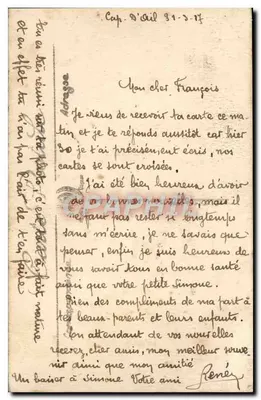 Cap. D'Ail 31-3-17
Mon cher François
Je viens de recevoir ta carte ce ma-
tin et je te réponds aussitôt car hier
30 je t'ai précisément écris, nos
cartes se sont croisées.
J'ai été bien heureux d'avoir
de mais il
ne faut pas rester si longtemps
sans m'écrire, je ne savais que
penser, enfin je suis heureux de
vous savoir tous en bonne santé
ainsi que votre petite Simone.
Bien des compléments de ma part à
tes beaux-parents et leurs enfants.
En attendant de vos nouvelles
recevez, cher ami, mon meilleur souve-
nir ainsi que mon amitié
Un baiser à Simone Votre ami René
tu es très réussi sur ta photo, c'est tout à fait nature
et en effet tu n'as pas l'air de t'en
faire